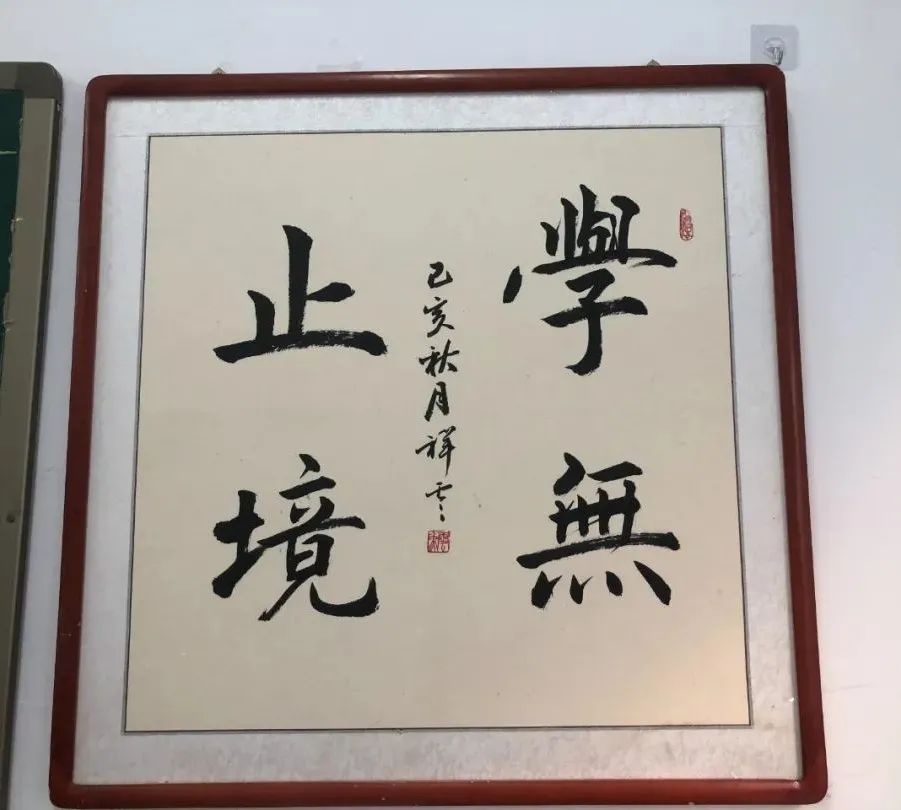 學無
止境
己亥秋月祥雲